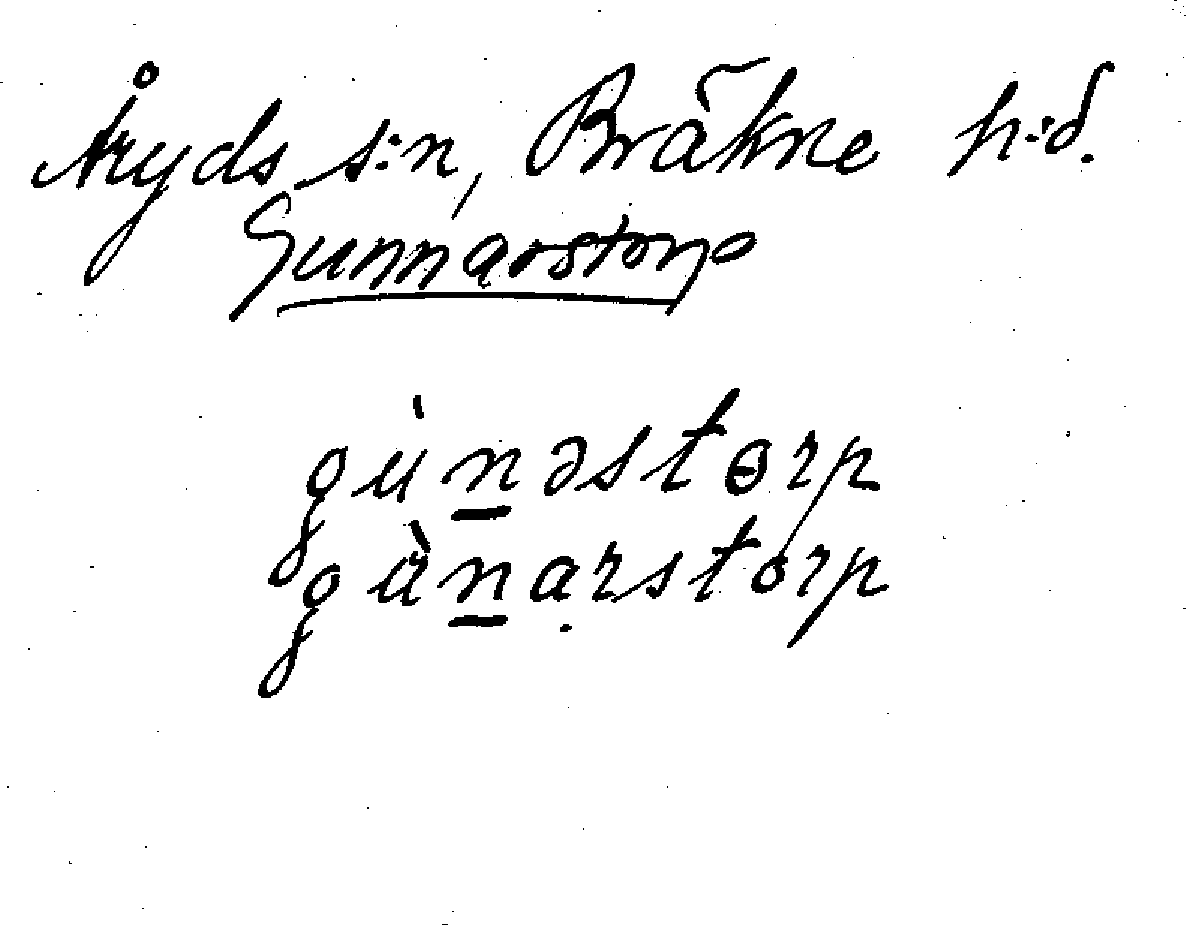 Åryds s:n, Bräkne h:d.
Gunnarstorp
gùn̲əstɵrp
gùn̲ạrstorp